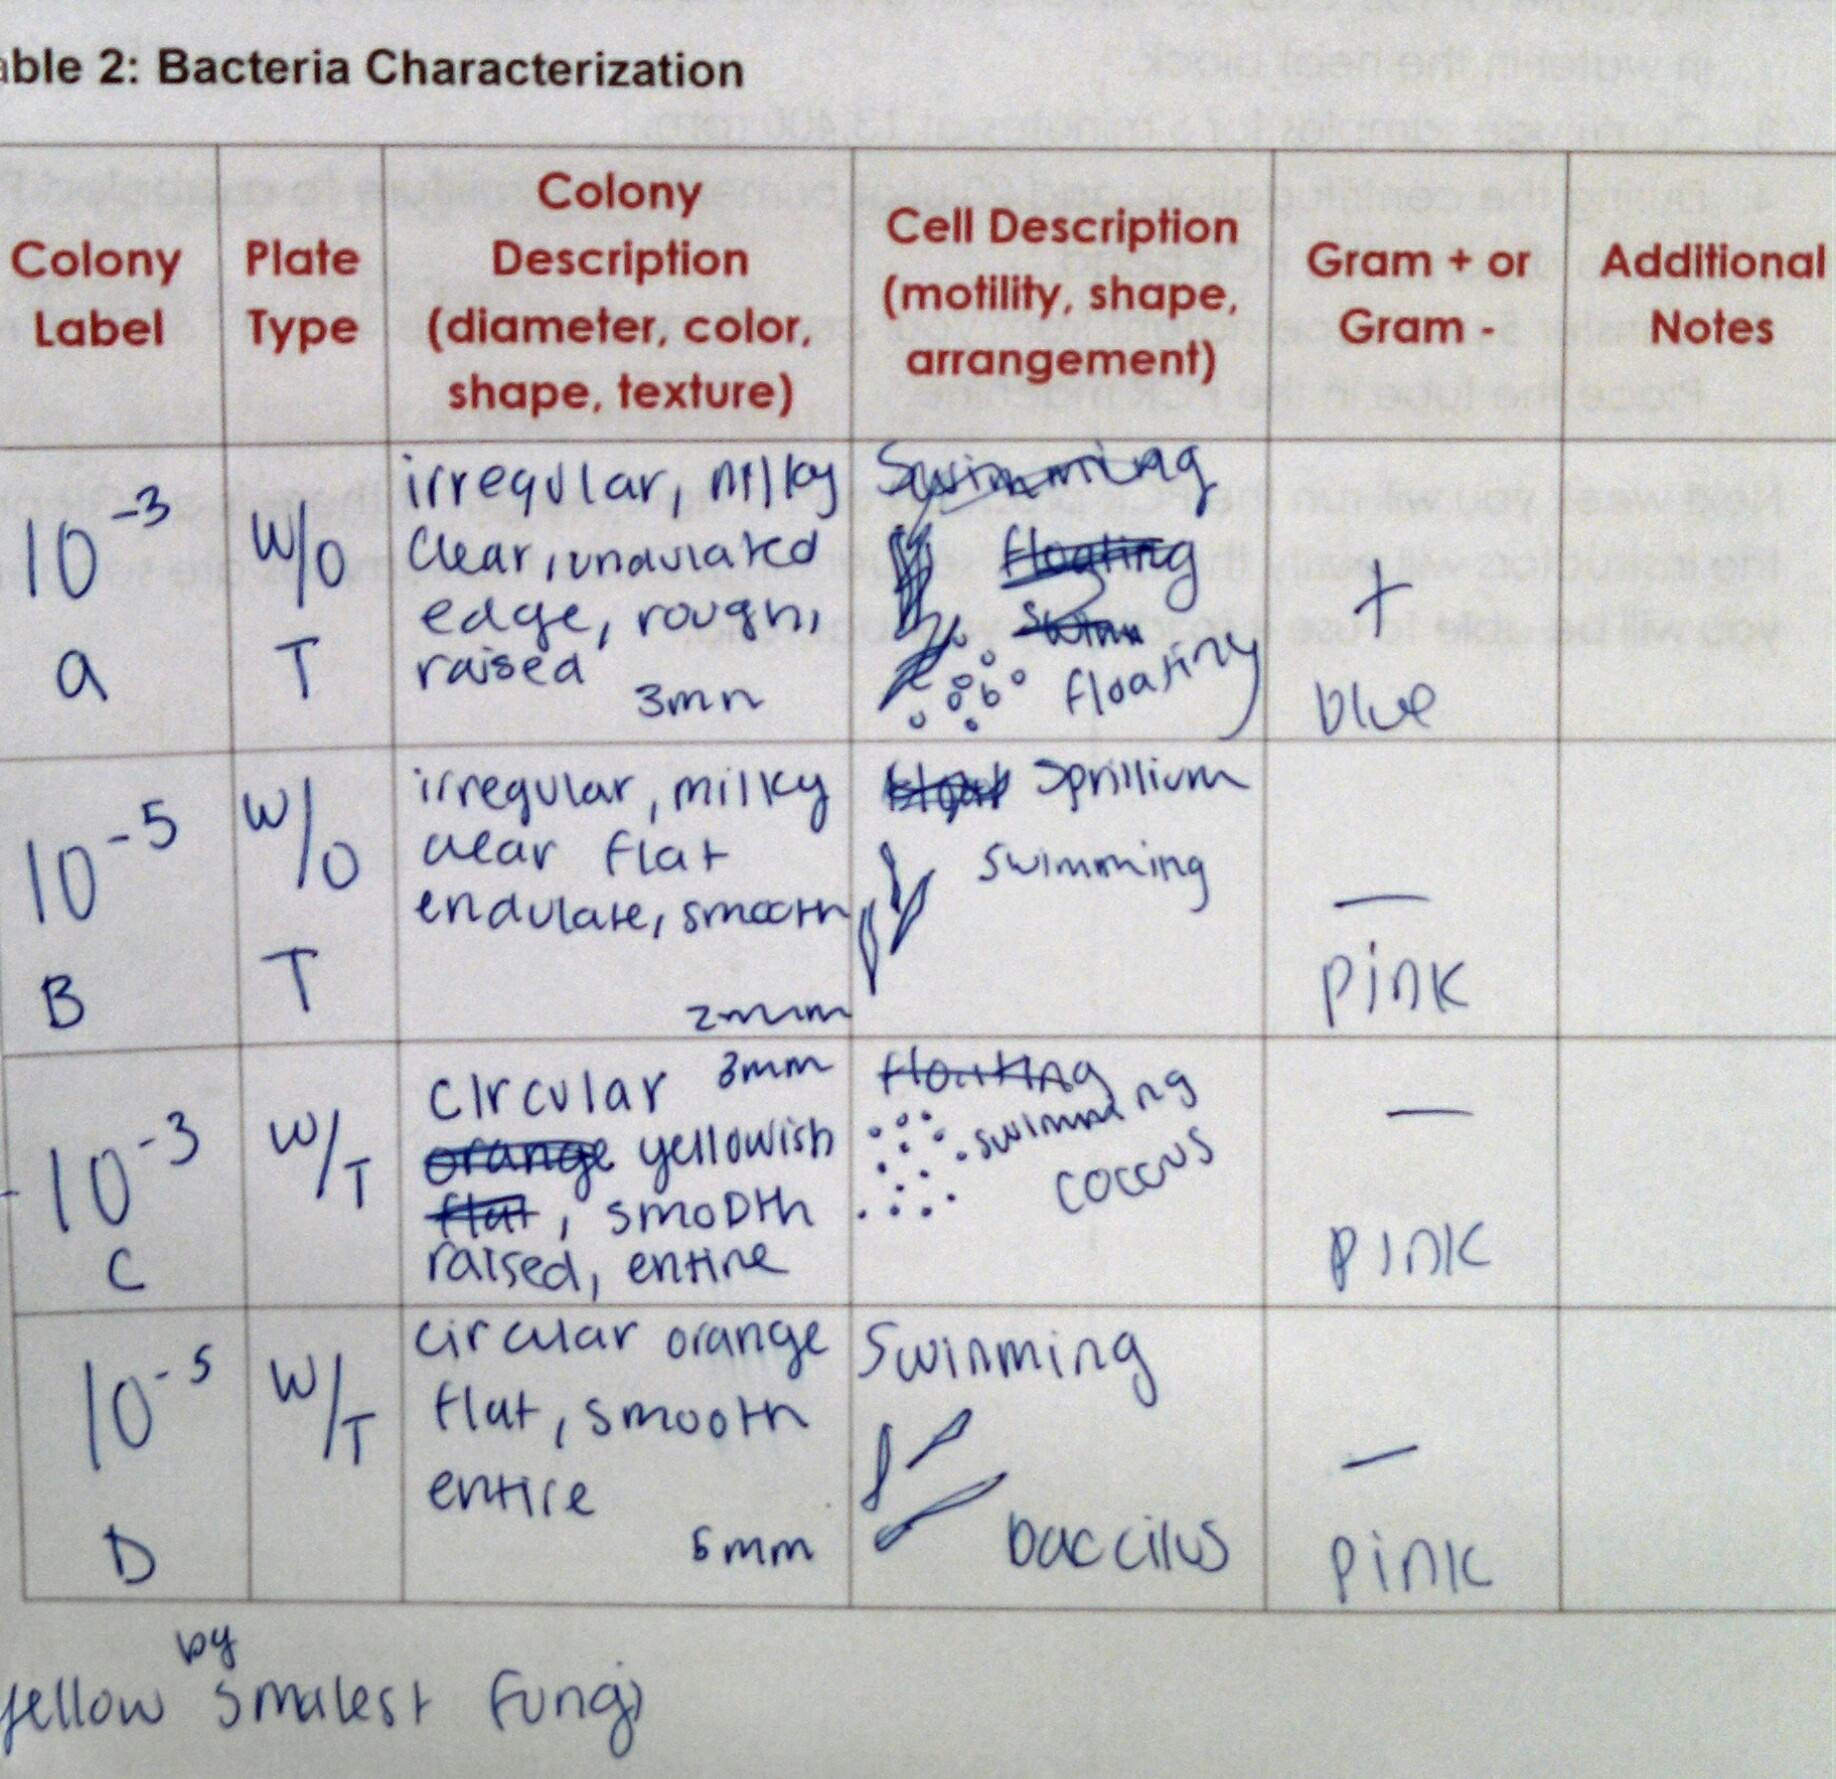 able 2: Bacteria Characterization
Colony Label
Plate Type
Colony Description (diameter, color, shape, texture)
Cell Description (motility, shape, arrangement)
Gram + or Gram -
Additional Notes
10⁻³ a
W/O T
irregular, milky
clear, undulated
edge, rough,
raised
3mm
Swimming
floating
swim
floating
+
blue
10⁻⁵ B
W/O T
irregular, milky
clear flat
endulate, smooth
2mm
Sprillium
swimming
—
pink
10⁻³ C
W/T
circular 3mm
orange yellowish
flat, smooth
raised, entire
floating
swimming
coccus
—
pink
10⁻⁵ D
W/T
circular orange
flat, smooth
entire
5mm
Swimming
baccilus
—
pink
by
yellow smalest fungi